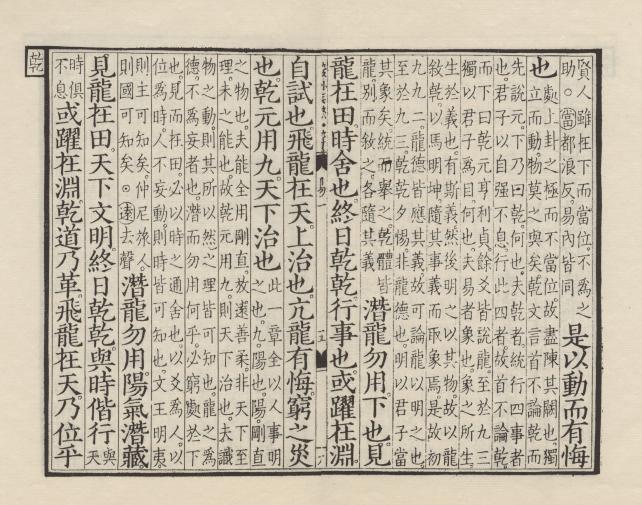 乾
賢人雖在下而當位不為之
助○當都浪反易內皆同
是以動而有悔
也
處上卦之極而不當位故盡陳其闕也獨
立而動物莫之與矣乾文言首不論乾而
先說元下乃曰乾何也夫乾者統行四事者
也君子以自强不息行此四者故首不論乾
而下曰乾元亨利貞餘爻皆說龍至於九三
獨以君子為目何也夫易者象也象之所生
生於義也有斯義然後明之以其物故以龍
敘乾以馬明坤隨其事義而取象焉是故初
九九二龍德皆應其義故可論龍以明之也
至於九三乾乾夕惕非龍德也明以君子當
其象矣統而舉之乾體皆
龍別而敘之各隨其義
潛龍勿用下也見
龍在田時舍也終日乾乾行事也或躍在淵
自試也飛龍在天上治也亢龍有悔窮之災
也乾元用九天下治也
此一章全以人事明
之也九陽也陽剛直
之物也夫能全用剛直放遠善柔非天下至
理未之能也故乾元用九則天下治也夫識
物之動則其所以然之理皆可知也龍之為
德不為妄者也潛而勿用何乎必窮處於下
也見而在田必以時之通舍也以爻為人以
位為時人不妄動則時皆可知也文王明夷
則主可知矣仲尼旅人
則國可知矣○遠去聲
潛龍勿用陽氣潛藏
見龍在田天下文明終日乾乾與時偕行
與天
時俱
不息
或躍在淵乾道乃革飛龍在天乃位乎